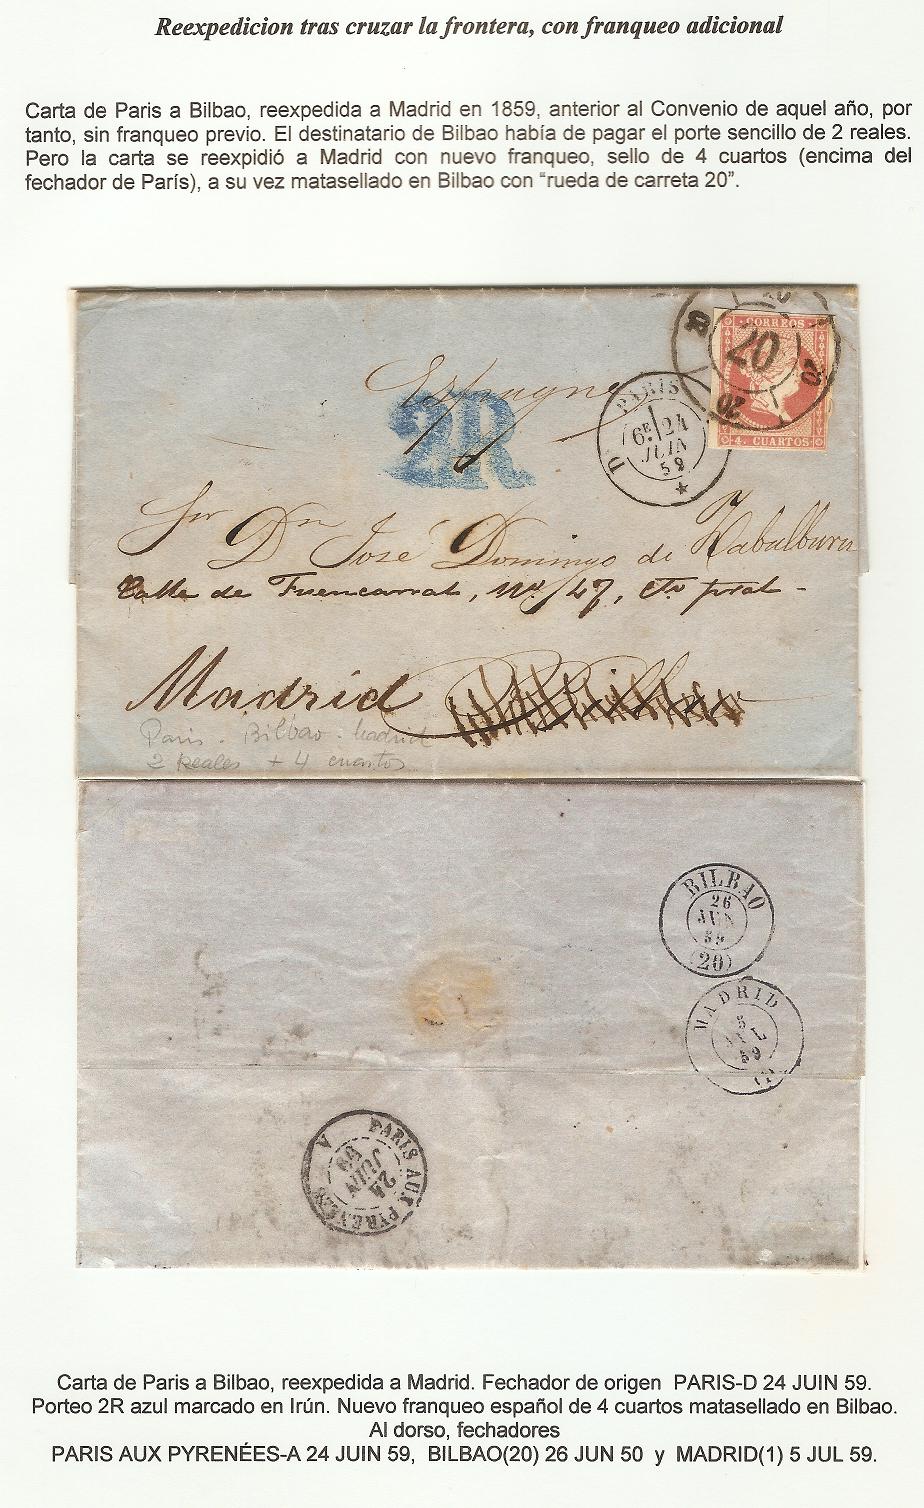 Reexpedicion tras cruzar la frontera, con franqueo adicional
Carta de Paris a Bilbao, reexpedida a Madrid en 1859, anterior al Convenio de aquel año, por
tanto, sin franqueo previo. El destinatario de Bilbao había de pagar el porte sencillo de 2 reales.
Pero la carta se reexpidió a Madrid con nuevo franqueo, sello de 4 cuartos (encima del
fechador de París), a su vez matasellado en Bilbao con “rueda de carreta 20”.
CORREOS
20
20
20
4. CUARTOS
Espagne
2R
PARIS
D
6E 24
JUIN
59
Sor Dn José Domingo de Zabalburu
Calle de Fuencarral, No. 47, Cto pral -
Madrid Bilbao
Paris - Bilbao - Madrid
2 Reales + 4 cuartos
BILBAO
26
JUN
59
(20)
MADRID
5
JUL
59
(1)
PARIS AUX PYRENEES
A
24
JUIN
59
Carta de Paris a Bilbao, reexpedida a Madrid. Fechador de origen PARIS-D 24 JUIN 59.
Porteo 2R azul marcado en Irún. Nuevo franqueo español de 4 cuartos matasellado en Bilbao.
Al dorso, fechadores
PARIS AUX PYRENÉES-A 24 JUIN 59, BILBAO(20) 26 JUN 50 y MADRID(1) 5 JUL 59.